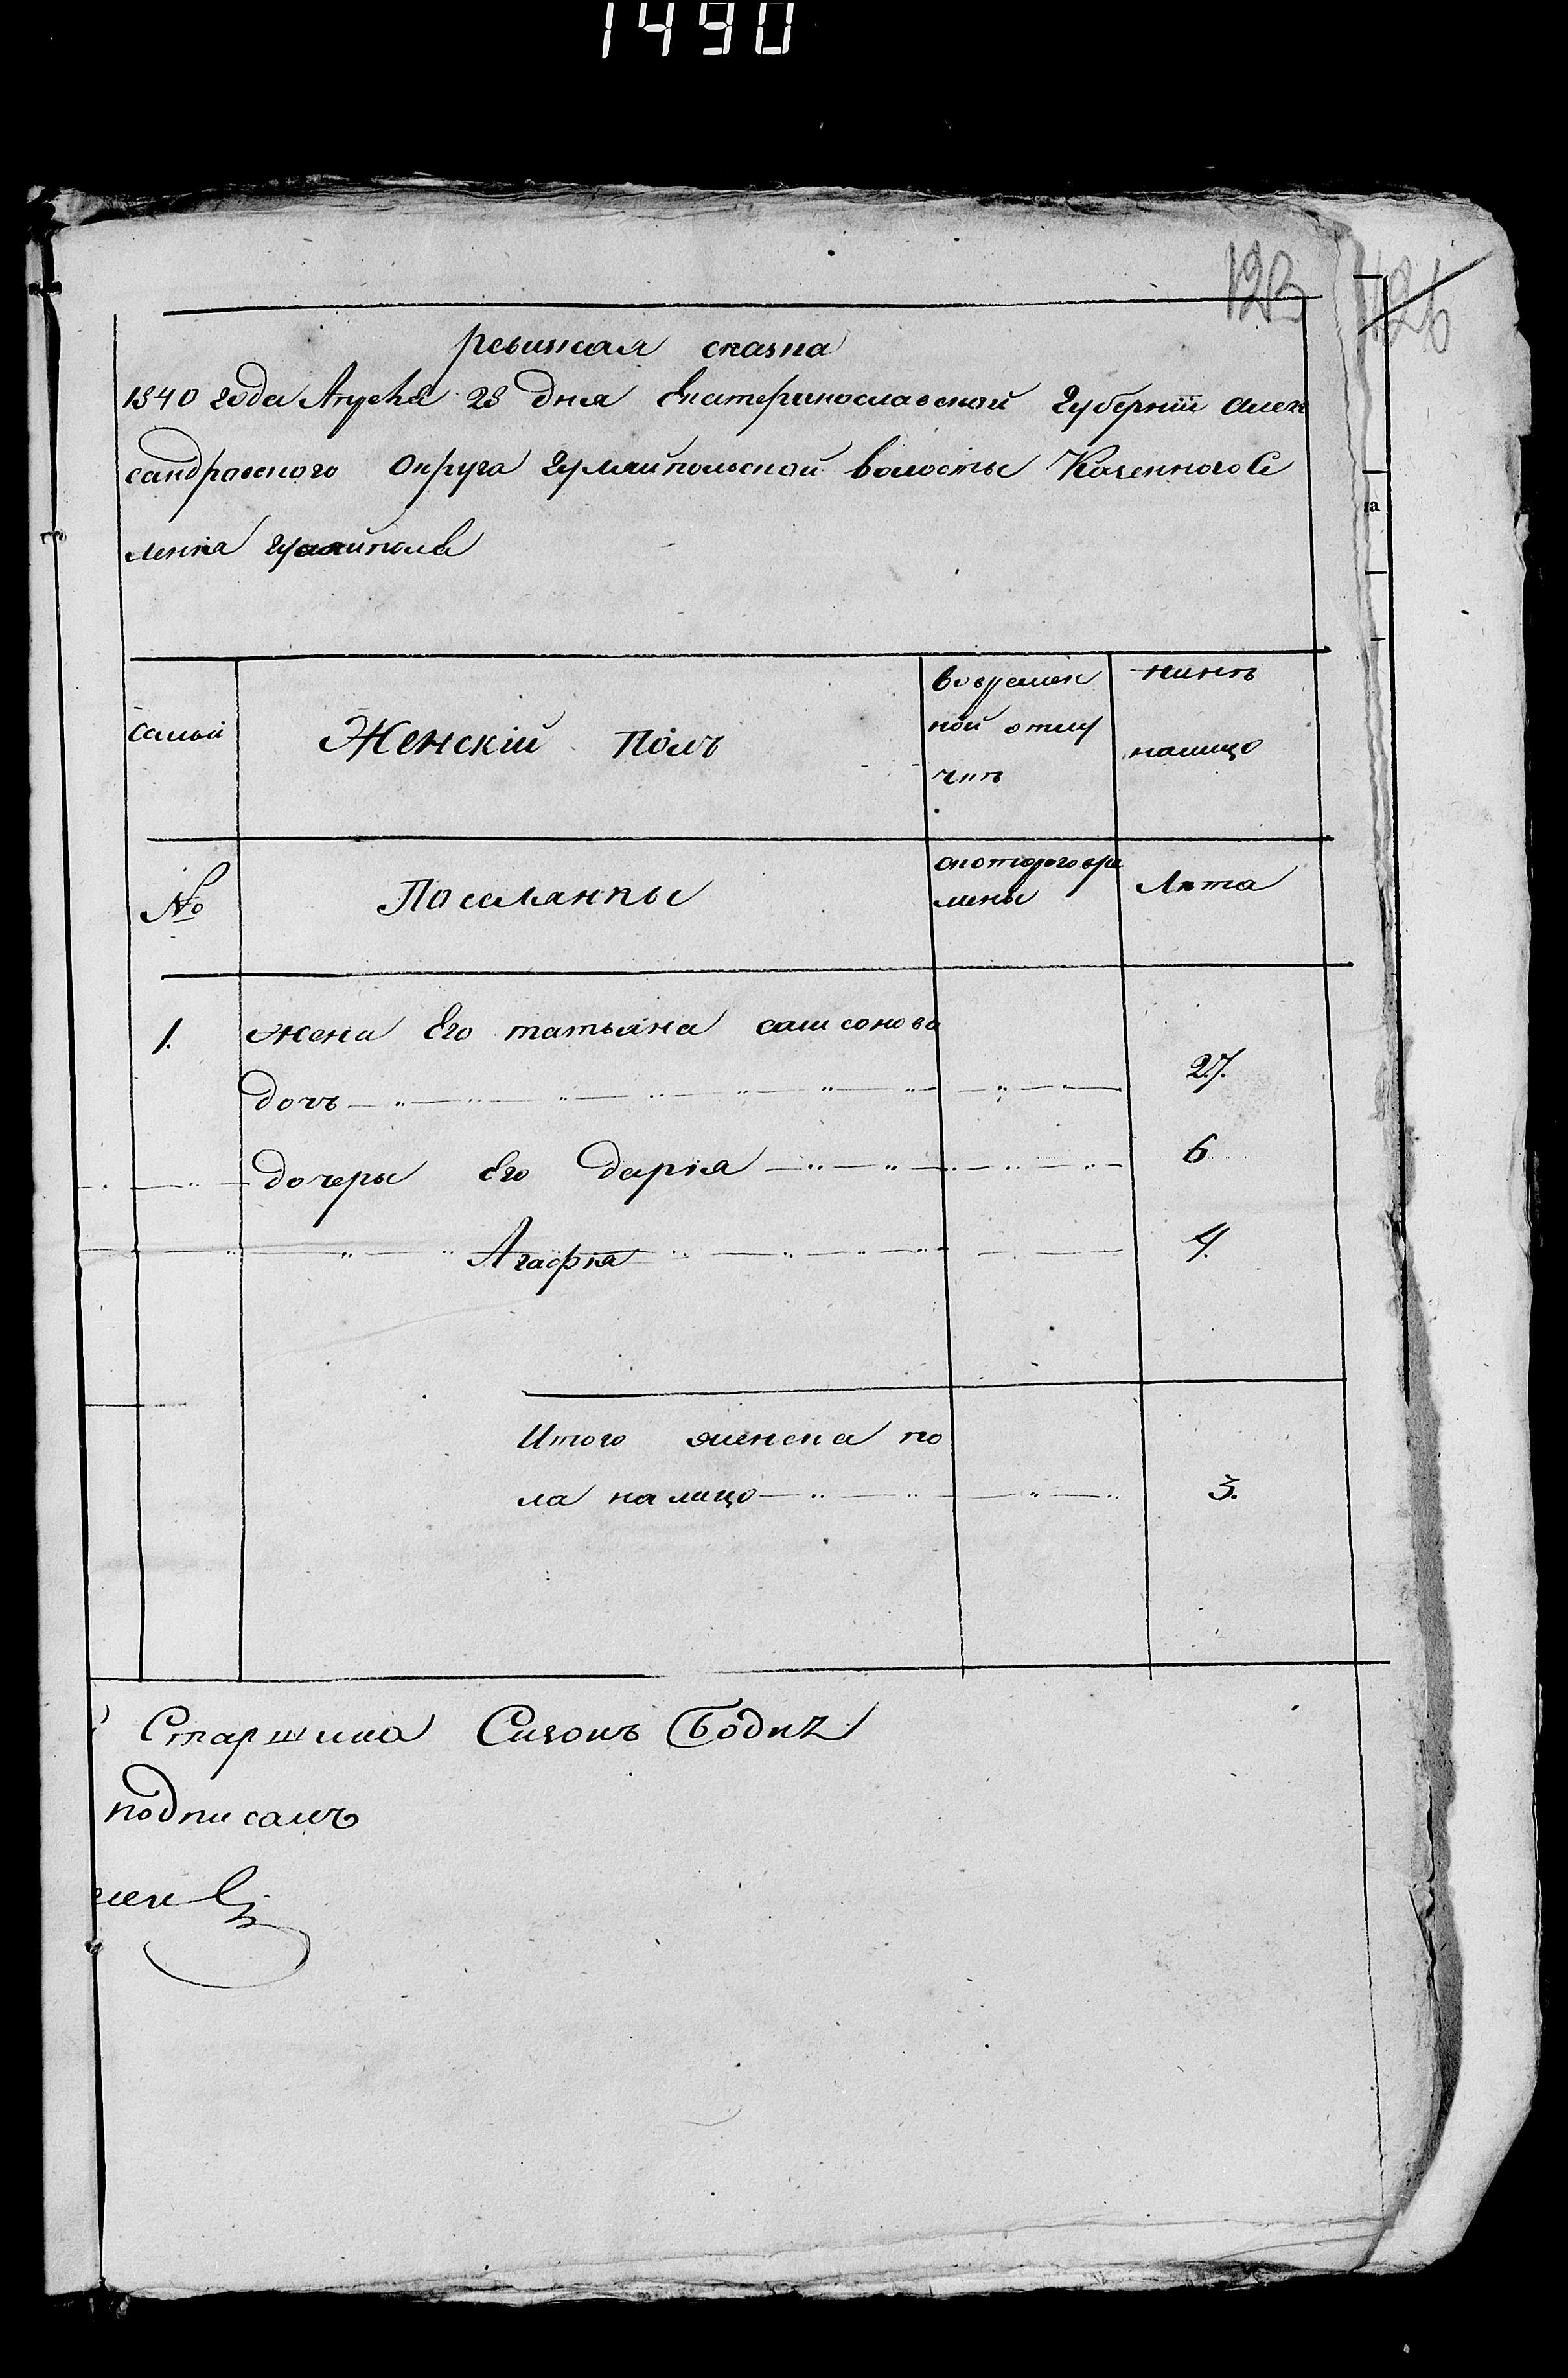 1490
123
126
ревижская сказка
1840 года Апреля 23 дня Екатеринославской Губернiи Алек
сандровского Округа Гуляйпольской волосты Казенного Се
ленiя Гуляйполя
семьи
Женскiй Полъ
во времен
ной отлу
чкѣ
нинѣ
налицо
№
Поселянкы
скоторого вре
мены
Лѣта
1. жена Его татьяна самсонова
дочъ 27.
дочеры Его дария 6
Агафия 4.
Итого женска по
ла на лицо 3.
Старшина Сизонъ Бодик
подписалъ